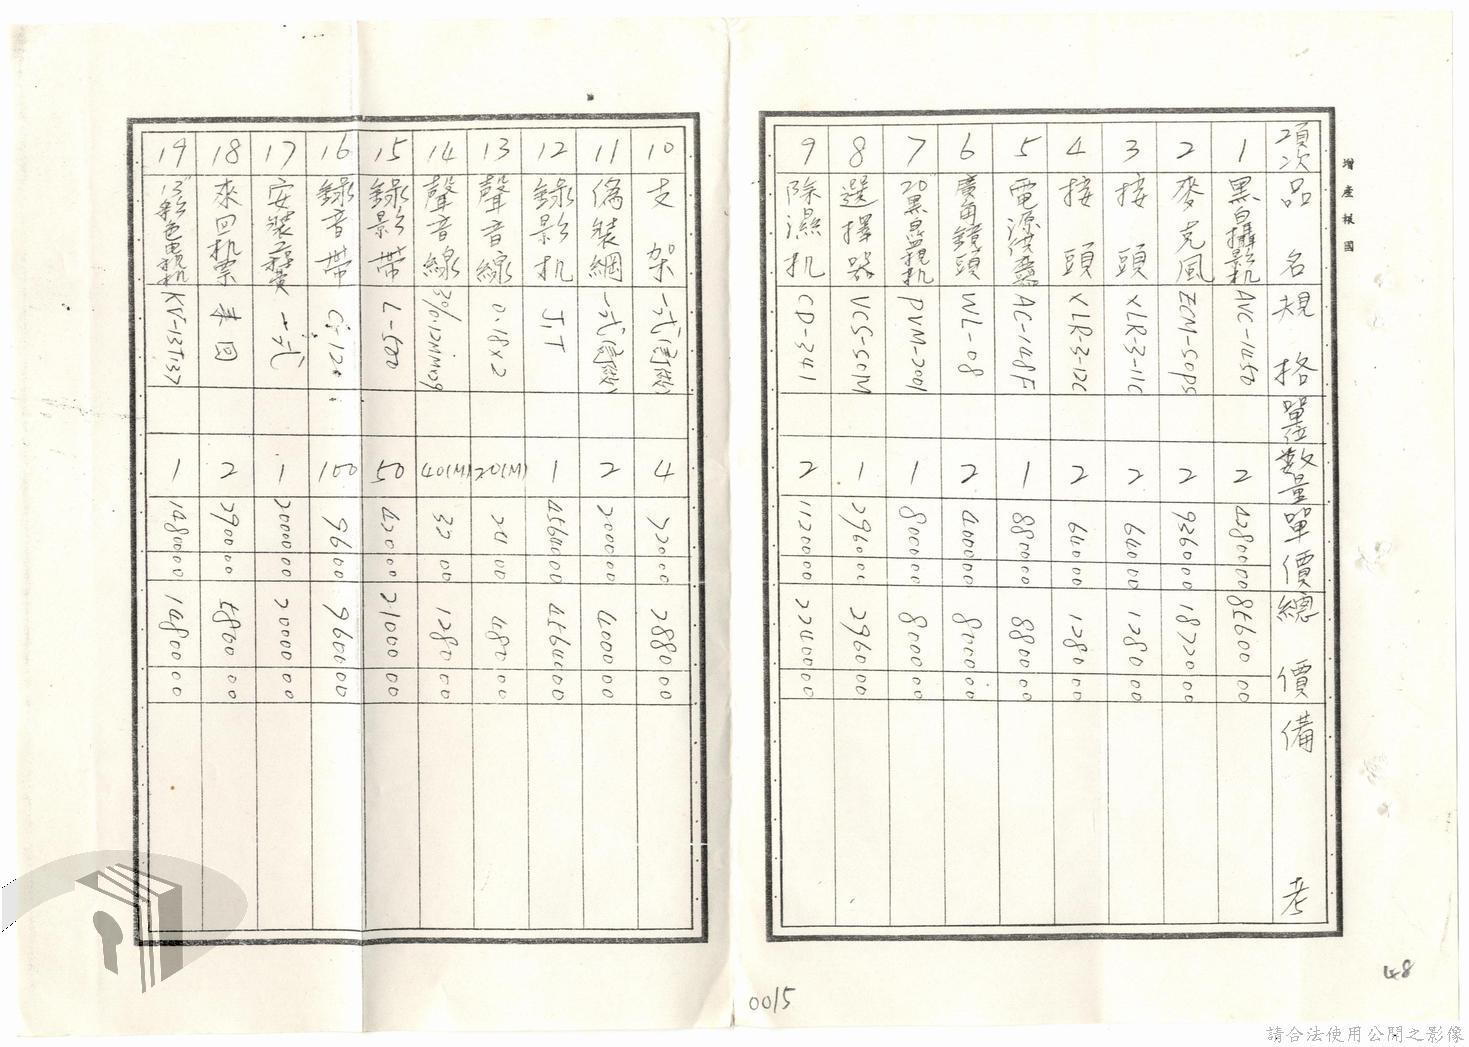 增產報國
項次 品名 規格 單位 數量 單價 總價 備考
1 黑白攝影机 AVC-1450 2 42800 00 85600 00
2 麥克風 ECM-50PS 2 9360 00 18720 00
3 接頭 XLR-3-11C 2 640 00 1280 00
4 接頭 XLR-3-12C 2 640 00 1280 00
5 電源供應器 AC-148F 1 8800 00 8800 00
6 廣角鏡頭 WL-08 2 4000 00 8000 00
7 20"黑白電視机 PVM-2001 1 8000 00 8000 00
8 選擇器 VCS-50M 1 2960 00 2960 00
9 除濕机 CD-341 2 11200 00 22400 00
10 支架 一式(房做) 4 720 00 2880 00
11 偽裝網 一式(房做) 2 2000 00 4000 00
12 錄影机 J.T 1 45600 00 45600 00
13 聲音線 0.18x2 20(M) 24 00 480 00
14 聲音線 30/0.12MMx9 40(M) 32 00 1280 00
15 錄影帶 L-500 50 420 00 21000 00
16 錄音帶 C-120 100 96 00 9600 00
17 安裝工資 一式 1 20000 00 20000 00
18 來回机票 來回 2 2900 00 5800 00
19 13"彩色電視机 KV-13T37 1 14800 00 14800 00
0015
48
請合法使用公開之影像